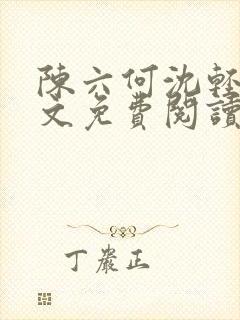 陳六何沈輕
文免費閱讀
丁嚴正